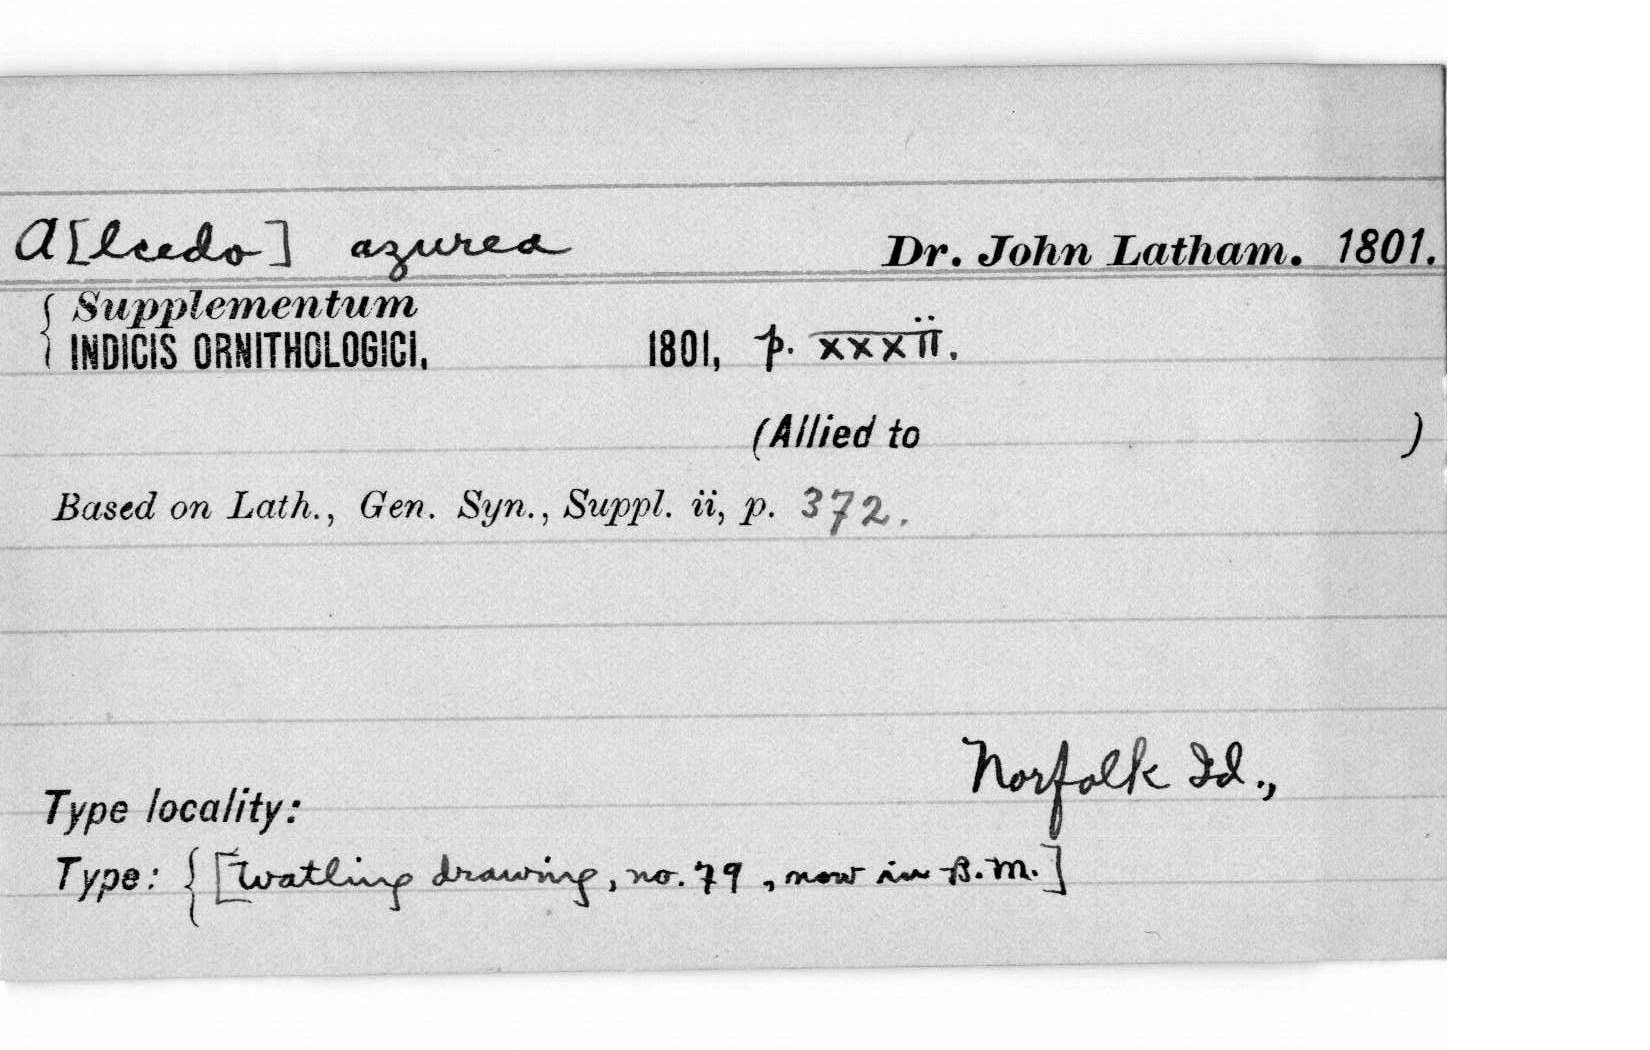 A[lcedo] azurea Dr. John Latham. 1801.
{ Supplementum
INDICIS ORNITHOLOGICI, 1801, p. xxxii.
(Allied to )
Based on Lath., Gen. Syn., Suppl. ii, p. 372.
Norfolk Id.,
Type locality:
Type: { [Watling drawing, no. 79, now in B.M.]